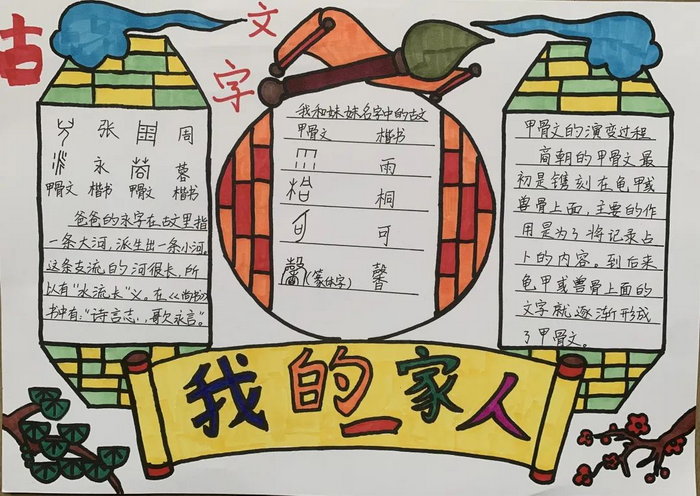 古
文
字
张 周
永 蓉
甲骨文 楷书 甲骨文 楷书
爸爸的永字在古文里指
一条大河,派生出一条小河。
这条支流的河很长,所
以有“水流长”义。在《尚书》
书中有:“诗言志,歌永言”。
我和妹妹名字中的古文
甲骨文 楷书
雨
桐
可
(篆体字) 馨
甲骨文的演变过程
商朝的甲骨文最
初是镌刻在龟甲或
兽骨上面,主要的作
用是为了将记录占
卜的内容。到后来
龟甲或兽骨上面的
文字就逐渐形成
了甲骨文。
我的一家人